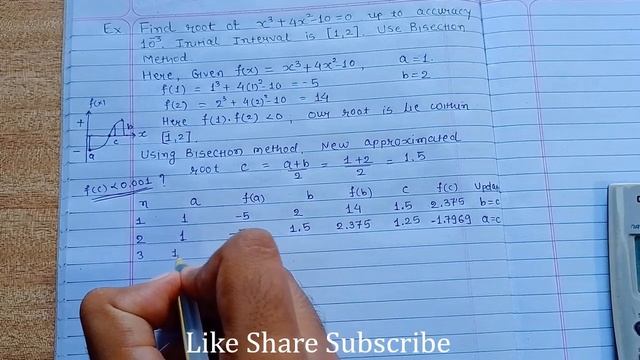 Ex Find root of x³+4x²-10=0 up to accuracy
10⁻³. Initial Interval is [1,2]. Use Bisection
Method.
Here, Given f(x) = x³+4x²-10, a=1.
f(1) = 1³+4(1)²-10 = -5 b=2
f(2) = 2³+4(2)²-10 = 14
Here f(1).f(2)<0, our root is lie within
[1,2].
Using Bisection method, New approximated
root c = a+b/2 = 1+2/2 = 1.5
f(x)
+
-
a
b
c
x
f(c)<0.001 ?
n a f(a) b f(b) c f(c) Update
1 1 -5 2 14 1.5 2.375 b=c
2 1 1.5 2.375 1.25 -1.7969 a=c
3 1.
Like Share Subscribe